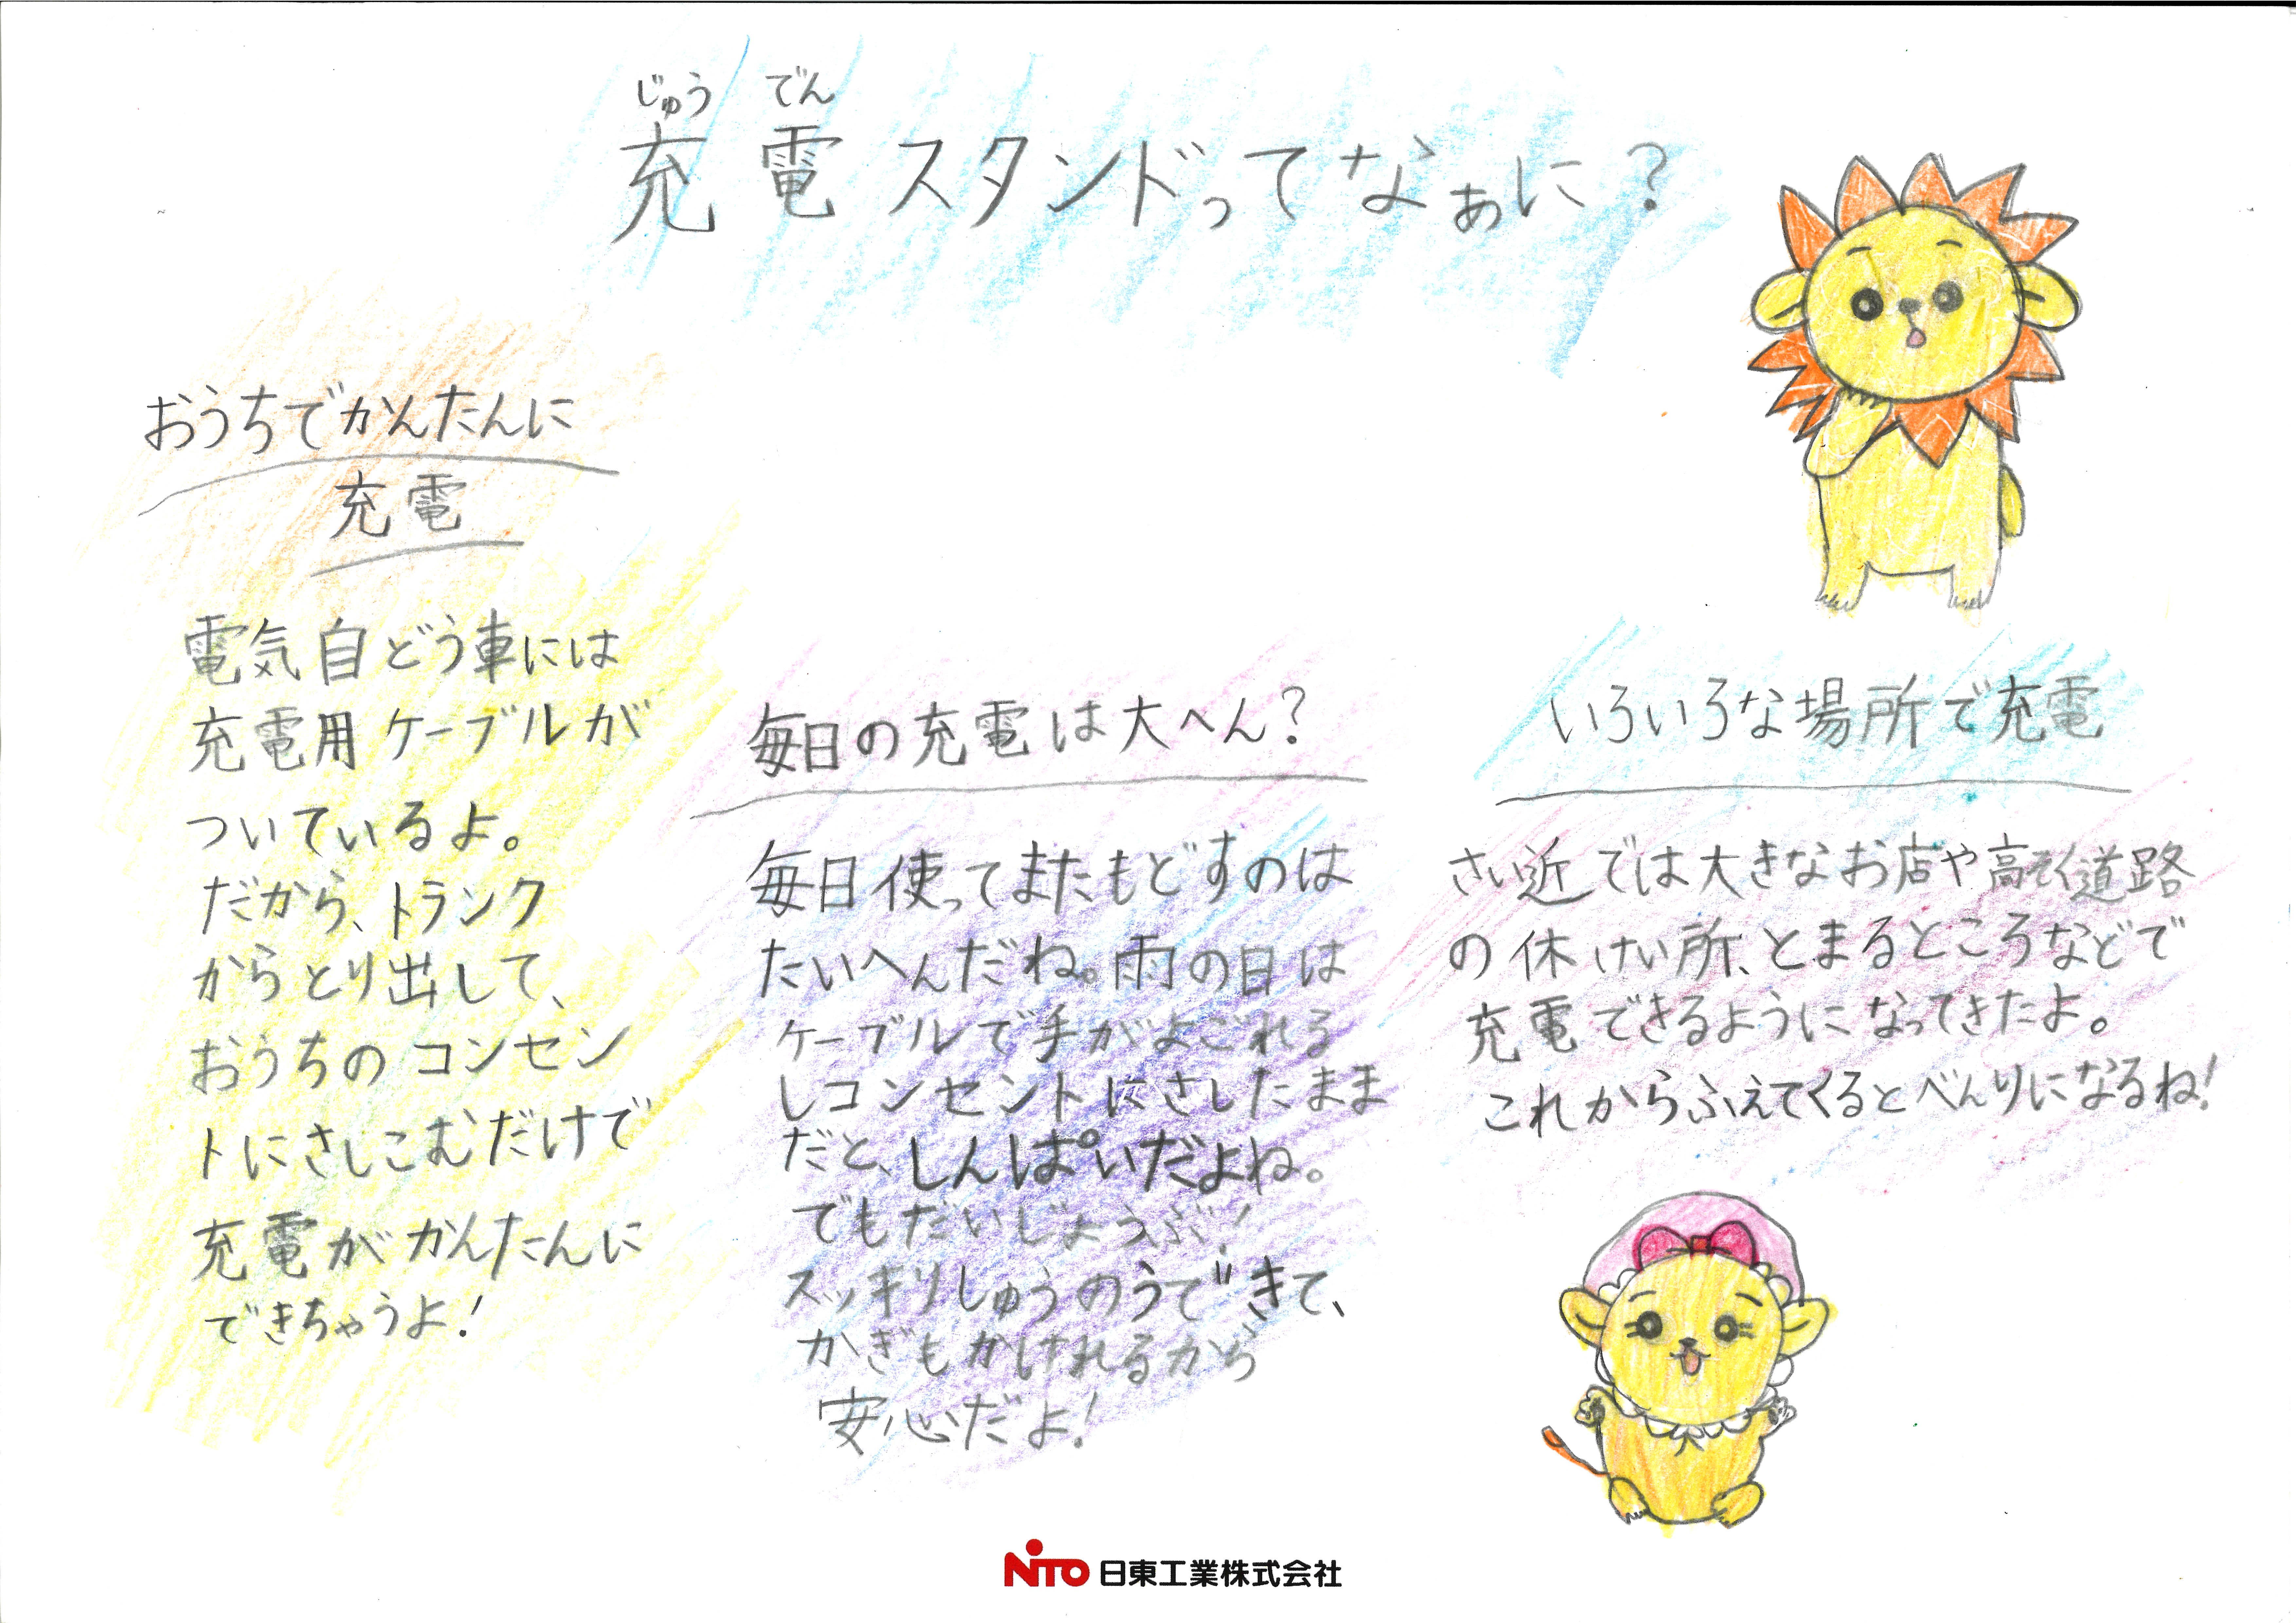 じゅう でん
充電スタンドってなぁに？
おうちでかんたんに
充電
電気自どう車には
充電用ケーブルが
ついているよ。
だから、トランク
からとり出して、
おうちのコンセン
トにさしこむだけで
充電がかんたんに
できちゃうよ！
毎日の充電は大へん？
毎日使ってまたもどすのは
たいへんだね。雨の日は
ケーブルで手がよごれる
しコンセントにさしたまま
だと、しんぱいだよね。
でもだいじょうぶ！
スッキリしゅうのうできて、
かぎもかけれるから
安心だよ！
いろいろな場所で充電
さい近では大きなお店や高そく道路
の休けい所、とまるところなどで
充電できるようになってきたよ。
これからふえてくるとべんりになるね！
NITO 日東工業株式会社